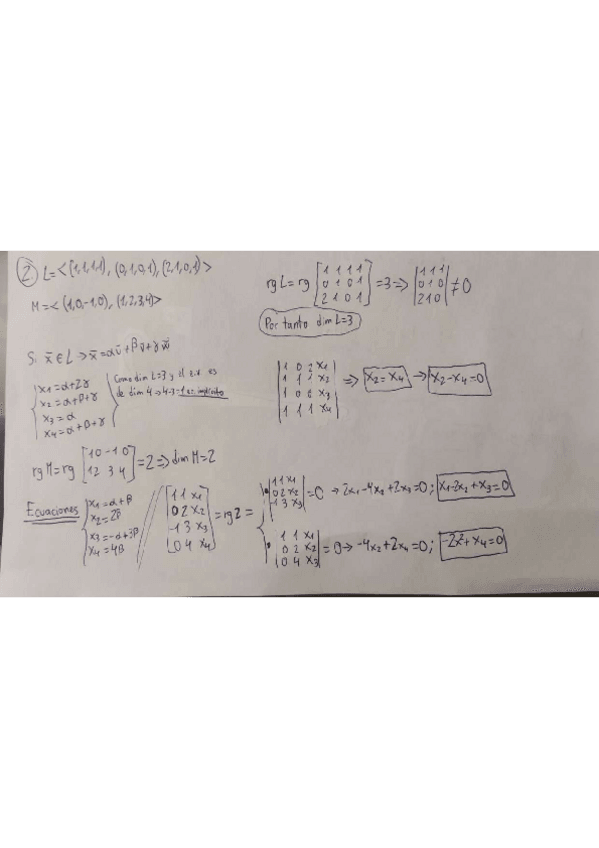 2. L=<(1,1,1,1), (0,1,0,1), (2,1,0,1)>
M=<(1,0,-1,0), (1,2,3,4)>
rg L = rg [1 1 1 1
0 1 0 1
2 1 0 1] =3=> |1 1 1
0 1 0
2 1 0| ≠0
Por tanto dim L=3
Si x̄∈L → x̄=αū+βv̄+γw̄
x1=α+2γ
x2=α+β+γ
x3=α
x4=α+β+γ
Como dim L=3 y el e.v es
de dim 4 → 4-3=1 ec. implícita
|1 0 2 x1
1 1 1 x2
1 0 0 x3
1 1 1 x4| => x2=x4 → x2-x4=0
rg M=rg [1 0 -1 0
1 2 3 4] =2=> dim M=2
Ecuaciones
x1=α+β
x2=2β
x3=-α+3β
x4=4β
[1 1 x1
0 2 x2
-1 3 x3
0 4 x4] = rg 2 =
|1 1 x1
0 2 x2
-1 3 x3| =0 → 2x1-4x2+2x3=0; x1-2x2+x3=0
|1 1 x1
0 2 x2
0 4 x3| =0→ -4x2+2x4=0; -2x²+x4=0